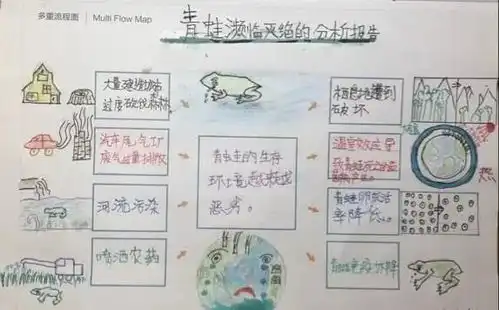 多重流程图 | Multi Flow Map
青蛙濒临灭绝的分析报告
大量建造城市
过度砍伐森林
栖息地遭到
破坏
汽车尾气工厂
废气过量排放
温室效应
青蛙的生存
环境越来越
恶劣。
河流污染
青蛙卵成活
率降低。
喷洒农药
青蛙免疫力下降